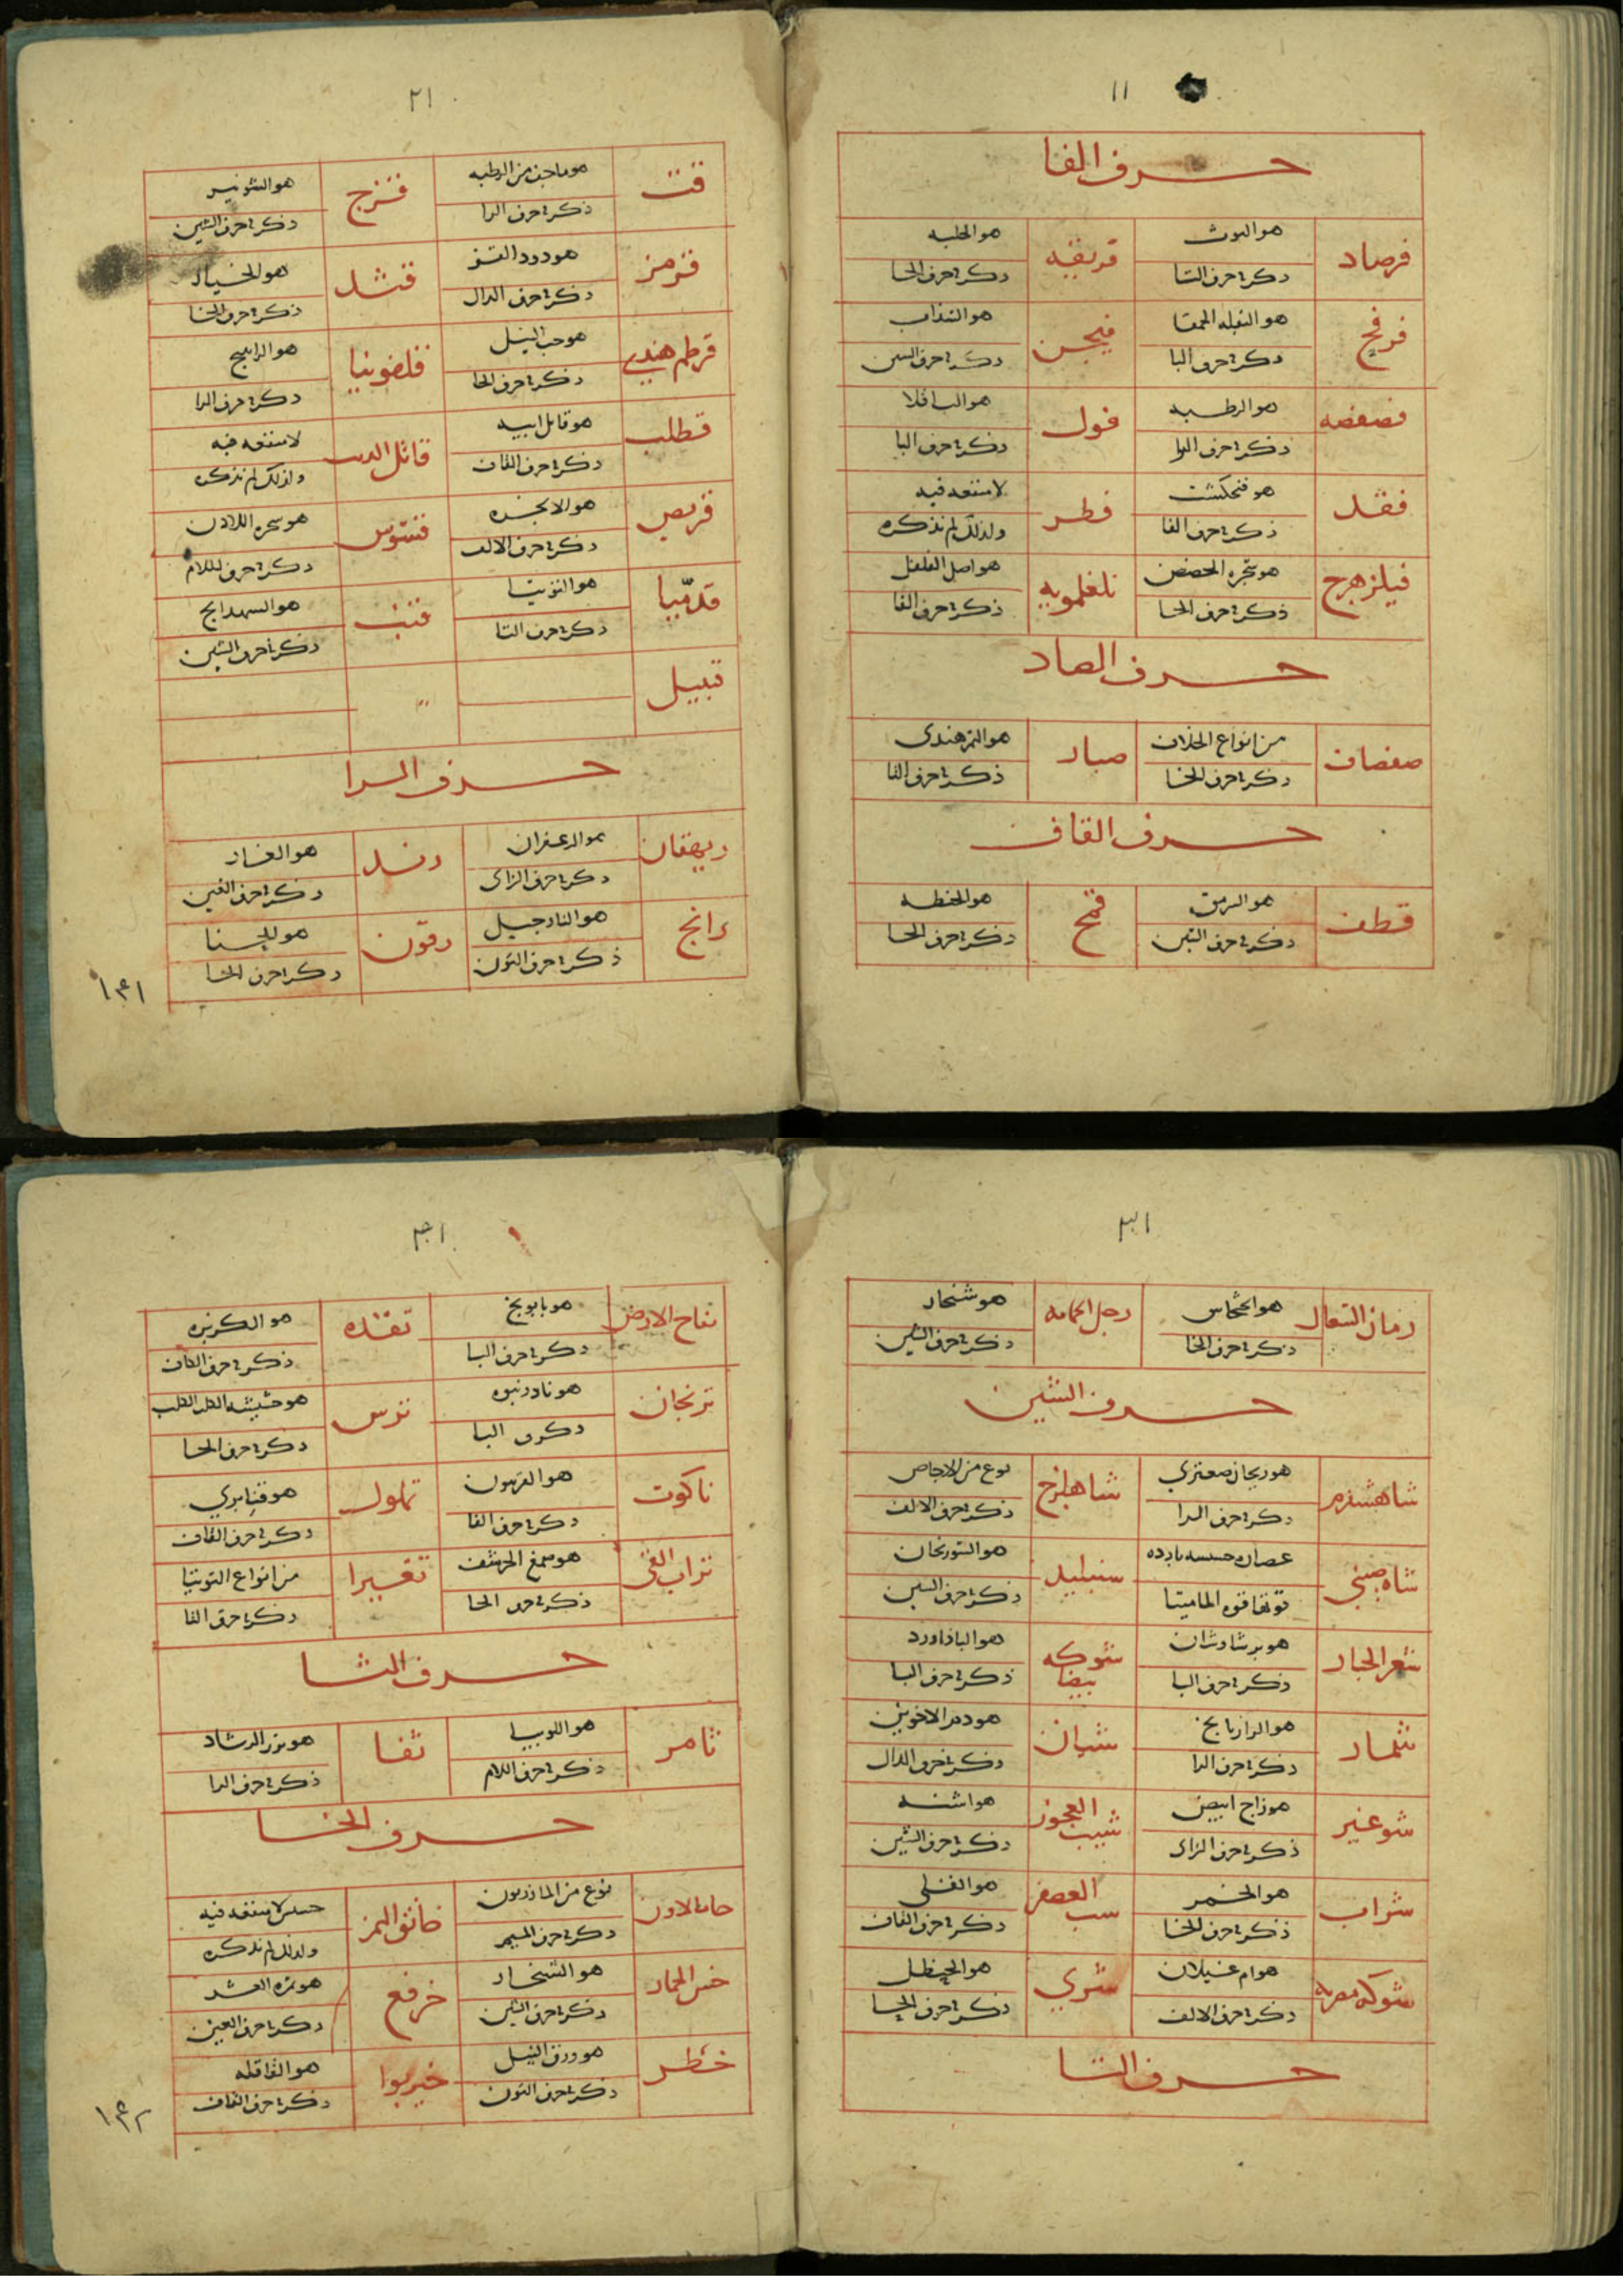 ١١
حرف الفا
فرصاد
هو التوث
ذكر في حرف التا
فريقه
هو الحلبه
ذكر في حرف الحا
فرفح
هو البقله الحمقا
ذكر في حرف البا
فيجن
هو السذاب
ذكر في حرف السين
فصفصه
هو الرطبه
ذكر في حرف الرا
فول
هو الباقلا
ذكر في حرف البا
فقد
هو فنجنكشت
ذكر في حرف الفا
فطر
لا منفعه فيه
ولذلك لم نذكره
فيلزهرج
هو شجره الحضض
ذكر في حرف الحا
فلفلمويه
هو اصل الفلفل
ذكر في حرف الفا
حرف الصاد
صفصاف
من انواع الخلاف
ذكر في حرف الخا
صبار
هو التمر هندى
ذكر في حرف التا
حرف القاف
قطف
هو السرمق
ذكر في حرف السين
قمح
هو الحنطه
ذكر في حرف الحا
٢١
قت
هو ما جف من الرطبه
ذكر في حرف الرا
قزح
هو الشونيز
ذكر في حرف الشين
قرمز
هو دود القز
ذكر في حرف الدال
قثد
هو الخيار
ذكر في حرف الخا
قرطم هندي
هو حب النيل
ذكر في حرف الحا
قلفونيا
هو الراتينج
ذكر في حرف الرا
قطلب
هو قاتل ابيه
ذكر في حرف القاف
قاتل الدب
لا منفعه فيه
ولذلك لم نذكره
قريص
هو الانجره
ذكر في حرف الالف
قستوس
هو شجره اللادن
ذكر في حرف اللام
قدميا
هو التوتيا
ذكر في حرف التا
قنب
هو الشهدانج
ذكر في حرف الشين
قبيل
حرف الرا
ريهقان
هو الزعفران
ذكر في حرف الزاى
رند
هو الغار
ذكر في حرف الغين
رانج
هو النارجيل
ذكر في حرف النون
رقون
هو الحنا
ذكر في حرف الحا
١٣١
٣١
رمان السعال
هو الخشخاش
ذكر في حرف الخا
رجل الحمامه
هو شنجار
ذكر في حرف الشين
حرف الشين
شاهسفرم
هو ريحان صعترى
ذكر في حرف الرا
شاهلوج
نوع من الاجاص
ذكر في حرف الالف
شاه صيني
عصاره حشيشه بارده
قوتها قوه الماميتا
سنبليد
هو السورنجان
ذكر في حرف السين
شعر الجبار
هو برشاوشان
ذكر في حرف البا
شوكه بيضا
هو الباذاورد
ذكر في حرف البا
شمار
هو الرازيانج
ذكر في حرف الرا
شيان
هو دم الاخوين
ذكر في حرف الدال
شوغير
هو زاج ابيض
ذكر في حرف الزاى
شيب العجوز
هو اشنه
ذكر في حرف الشين
شراب
هو الخمر
ذكر في حرف الخا
شب العصفر
هو القلى
ذكر في حرف القاف
شوكه مصريه
هو ام غيلان
ذكر في حرف الالف
شري
هو الحنظل
ذكر في حرف الحا
حرف التا
٤١
تفاح الارض
هو بابونج
ذكر في حرف البا
تقده
هو الكزبره
ذكر في حرف الكاف
ترنجان
هو بادرنبوه
ذكر في البا
ترس
هو حشيشه الكلب الكلب
ذكر في حرف الحا
تاكوت
هو الفربيون
ذكر في حرف الفا
تملول
هو قنابري
ذكر في حرف القاف
تراب القى
هو صمغ الحرشف
ذكر في حرف الحا
تفسيرا
من انواع التوتيا
ذكر في حرف التا
حرف الثا
ثامر
هو اللوبيا
ذكر في حرف اللام
ثفا
هو بزر الرشاد
ذكر في حرف الرا
حرف الخا
خامالاون
نوع من المازريون
ذكر في حرف الميم
خانق النمر
حشيش لا منفعه فيه
ولذلك لم نذكره
خس الحمار
هو الشنجار
ذكر في حرف الشين
خرفع
هو ثمره العشر
ذكر في حرف العين
خطر
هو ورق النيل
ذكر في حرف النون
خيربوا
هو القاقله
ذكر في حرف القاف
١٣٢